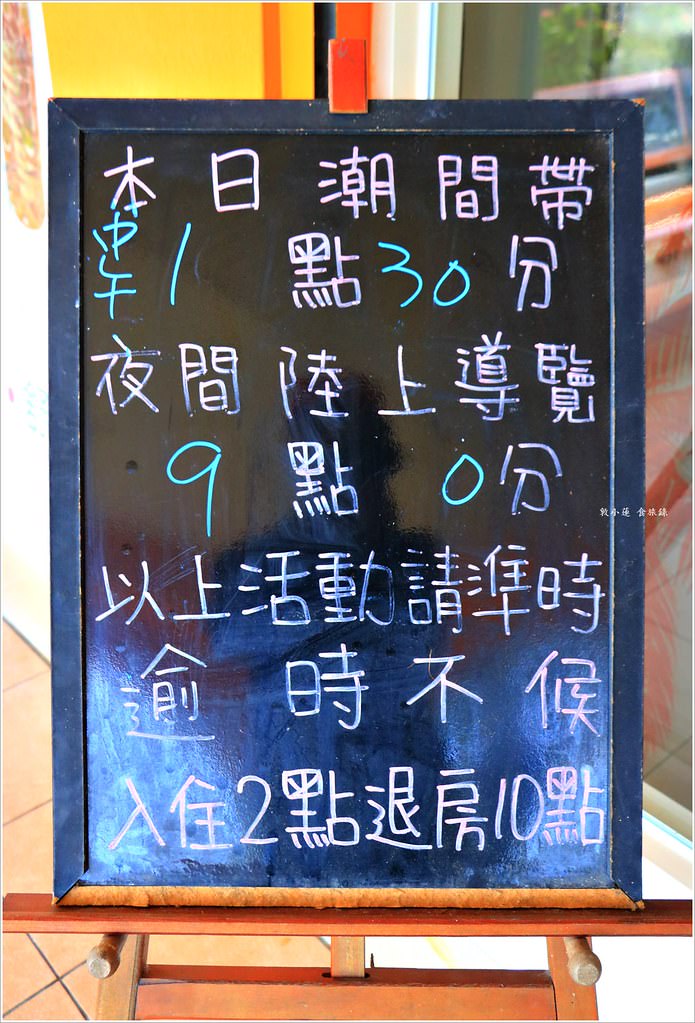 本日潮間帶
中午1點30分
夜間陸上導覽
9點0分
以上活動請準時
逾時不候
入住2點退房10點
敦小蓮 食旅錄